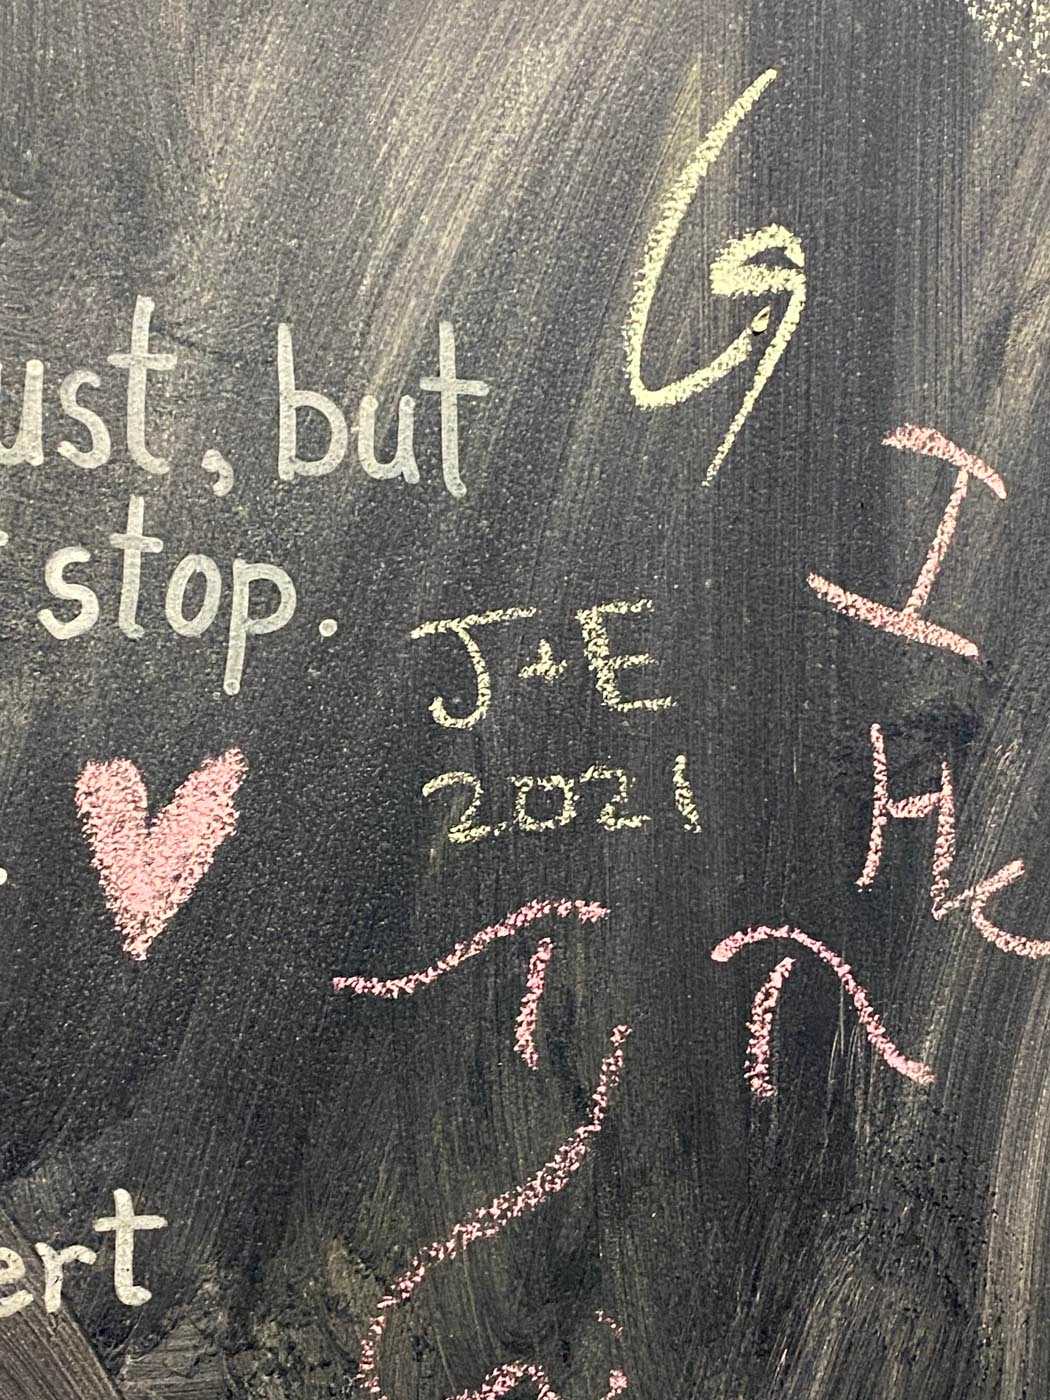 ust, but
stop.
J+E
2021
I
H
ert